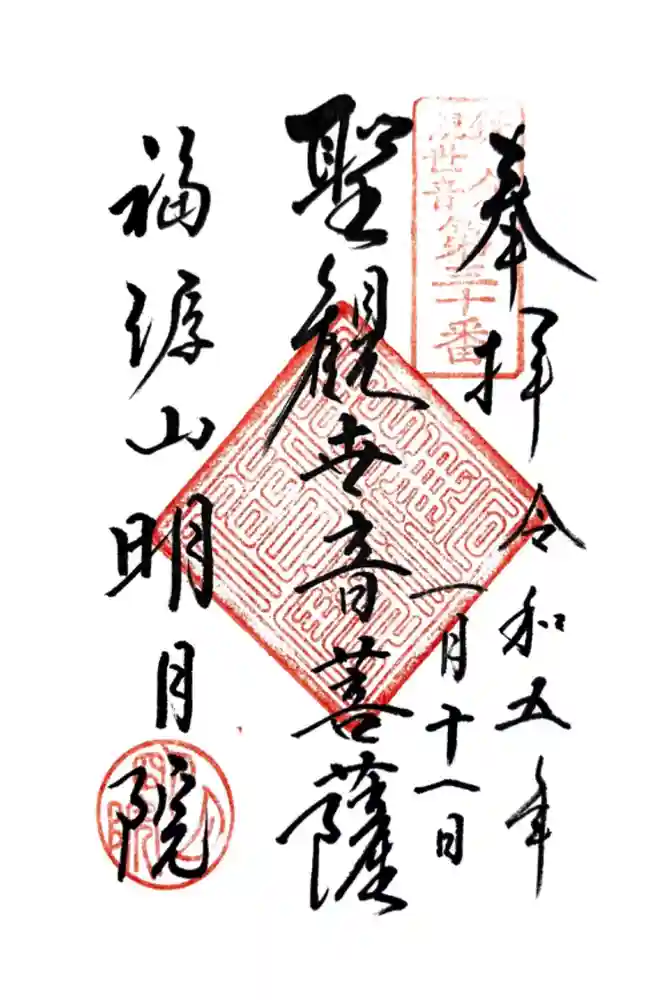 奉拝
令和五年
一月十一日
観世音第三十番
聖観世音菩薩
福源山明月院